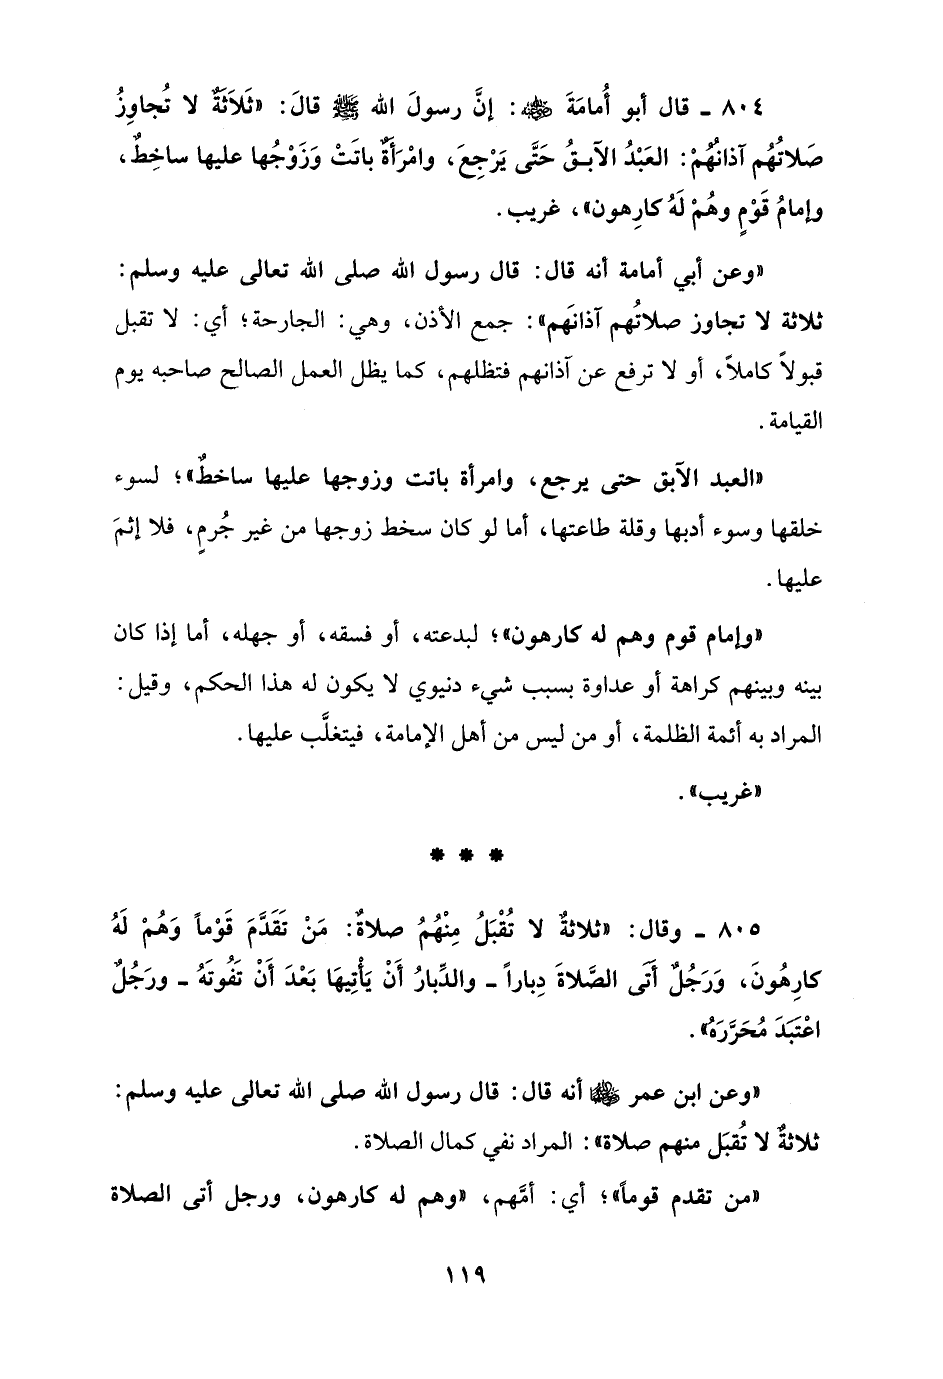 ٨٠٤ ـ قال أبو أُمامَةَ ﷺ: إنَّ رسولَ الله ﷺ قالَ: «ثَلاَثَةٌ لا تُجاوِزُ
صَلاتُهُم آذانُهُمْ: العَبْدُ الآبـقُ حَتَّى يَرْجِعَ، وامْرَأَةٌ باتَتْ وَزَوْجُها عليها ساخِطٌ،
وإمامُ قَوْمٍ وهُمْ لَهُ كارِهون»، غريب.
«وعن أبي أمامة أنه قال: قال رسول الله صلى الله تعالى عليه وسلم:
ثلاثة لا تجاوز صلاتُهم آذانَهم»: جمع الأذن، وهي: الجارحة؛ أي: لا تقبل
قبولاً كاملاً، أو لا ترفع عن آذانهم فتظلهم، كما يظل العمل الصالح صاحبه يوم
القيامة.
«العبد الآبق حتى يرجع، وامرأة باتت وزوجها عليها ساخطٌ»؛ لسوء
خلقها وسوء أدبها وقلة طاعتها، أما لو كان سخط زوجها من غير جُرمٍ، فلا إثمَ
عليها.
«وإمام قوم وهم له كارهون»؛ لبدعته، أو فسقه، أو جهله، أما إذا كان
بينه وبينهم كراهة أو عداوة بسبب شيء دنيوي لا يكون له هذا الحكم، وقيل:
المراد به أئمة الظلمة، أو من ليس من أهل الإمامة، فيتغلَّب عليها.
«غريب».
* * *
٨٠٥ ـ وقال: «ثلاثةٌ لا تُقْبَلُ مِنْهُمُ صلاةٌ: مَنْ تَقَدَّمَ قَوْماً وَهُمْ لَهُ
كارِهُونَ، وَرَجُلٌ أَتَى الصَّلاةَ دِباراً ـ والدِّبارُ أَنْ يَأْتِيهَا بَعْدَ أَنْ تَفُوتَهُ ـ ورجُلٌ
اعْتَبَدَ مُحَرَّرَهُ».
«وعن ابن عمر ﷺ أنه قال: قال رسول الله صلى الله تعالى عليه وسلم:
ثلاثةٌ لا تُقبَل منهم صلاة»: المراد نفي كمال الصلاة.
«من تقدم قوماً»؛ أي: أمَّهم، «وهم له كارهون، ورجل أتى الصلاة
١١٩